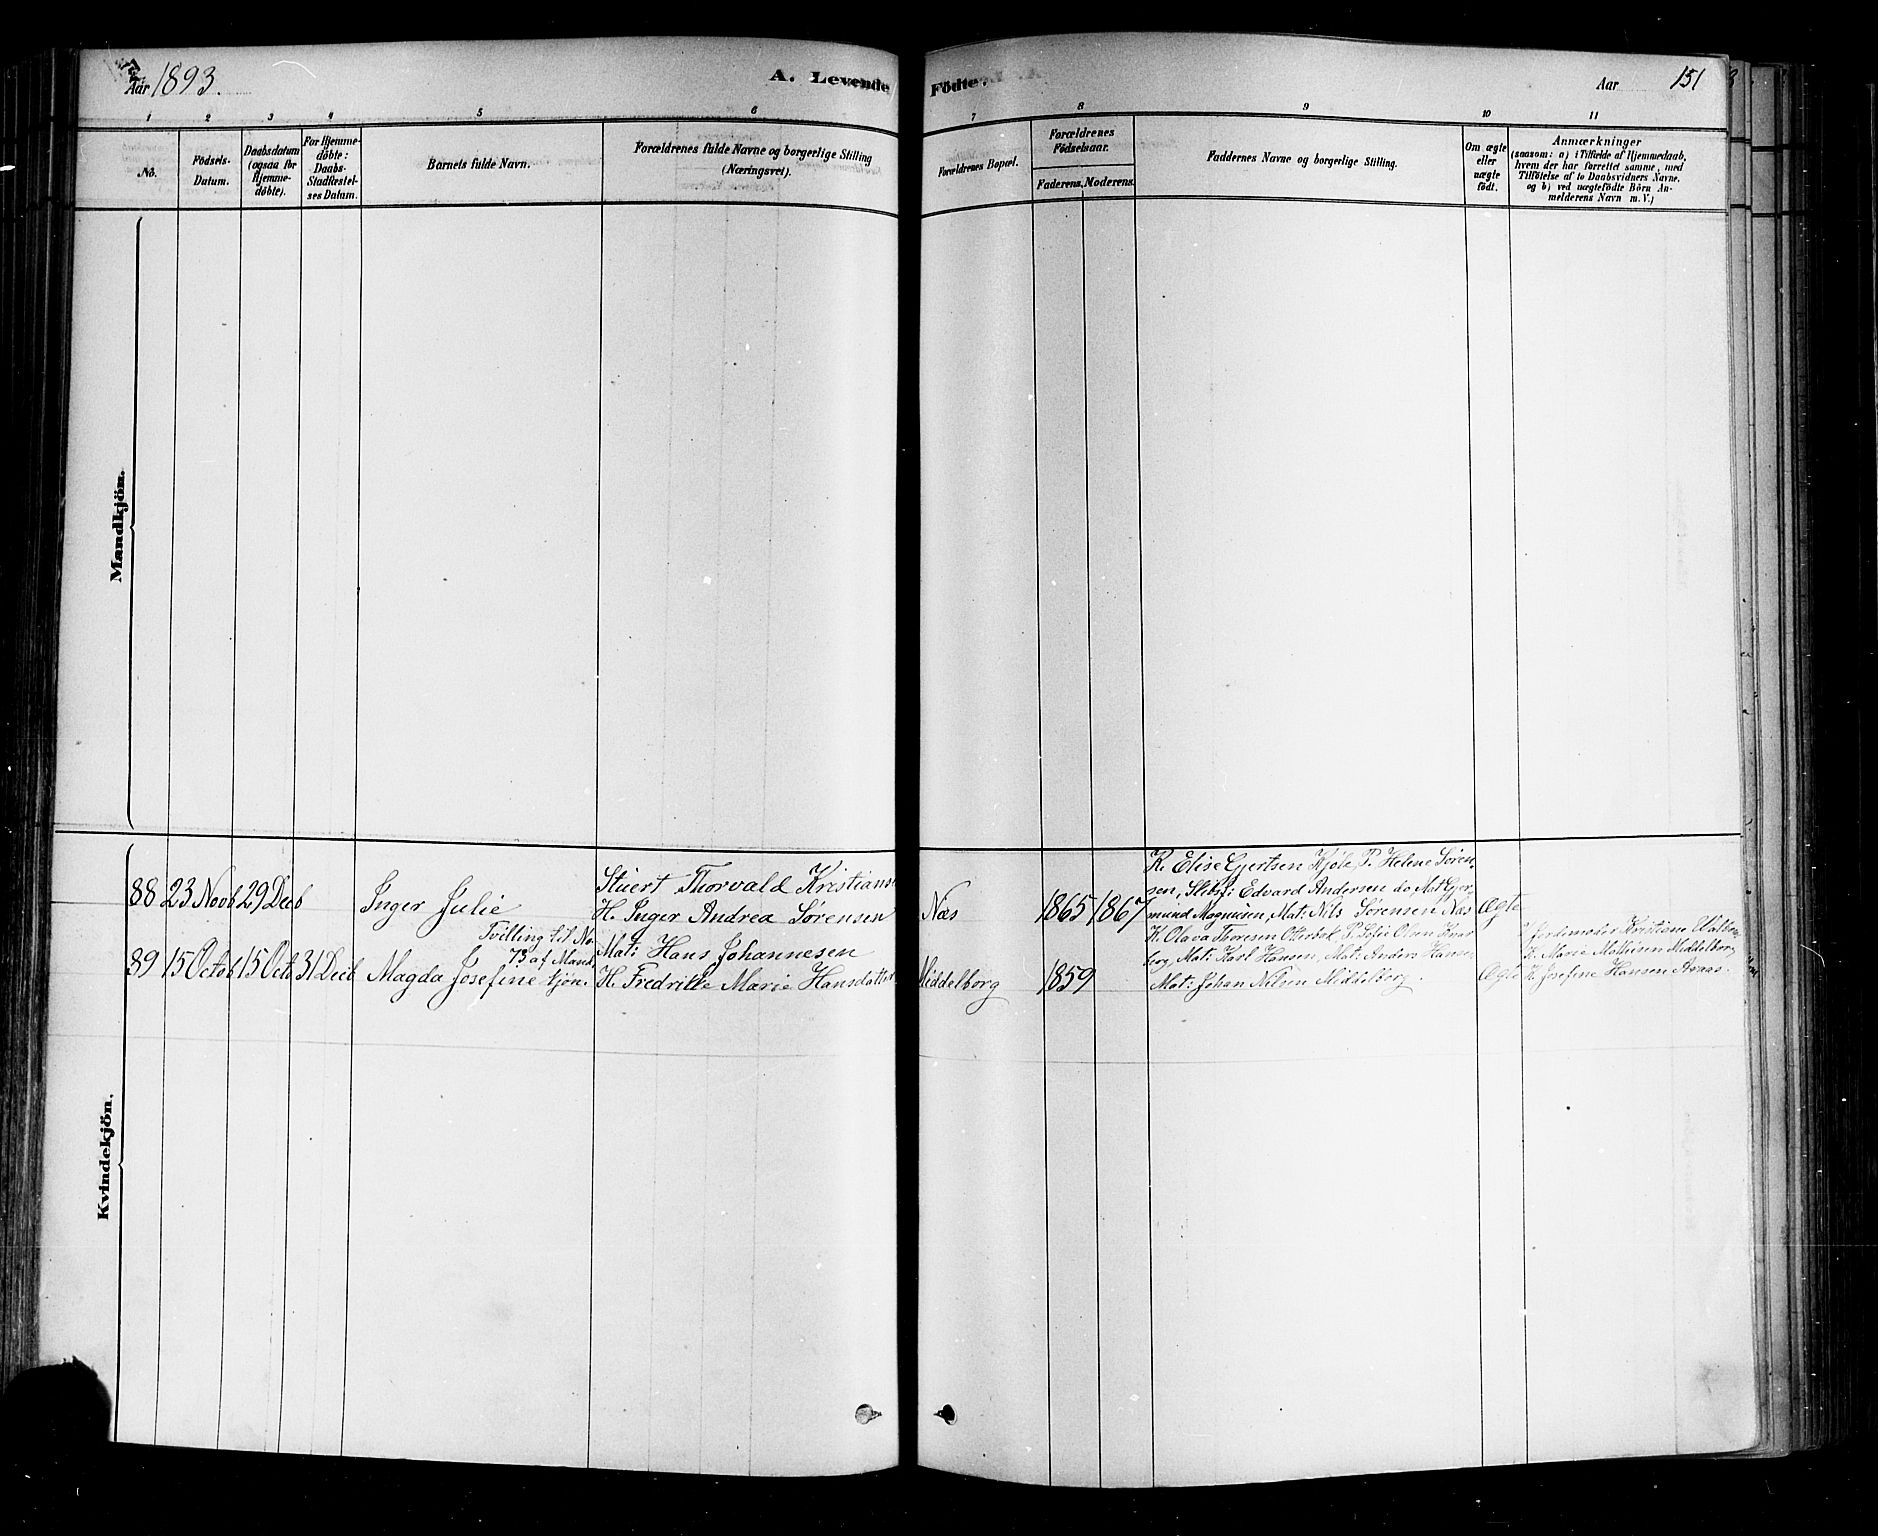 Aar 1893.
A. Levende
Födte.
Aar
151
1
2
3
4
5
6
7
8
9
10
11
No.
Födsels-
Datum.
Daabsdatum
(ogsaa for
Hjemme-
döbte).
For Hjemme-
döbte:
Daabs-
Stadfæstel-
ses Datum.
Barnets fulde Navn.
Forældrenes fulde Navne og borgerlige Stilling
(Næringsvei).
Forældrenes Bopæl.
Forældrenes
Födselsaar.
Faderens.
Moderens.
Faddernes Navne og borgerlige Stilling.
Om ægte
eller
uægte
födt.
Anmærkninger
(saasom: a) i Tilfælde af Hjemmedaab,
hvem der har forrettet samme, med
Tilföielse af to Daabsvidners Navne,
og b) ved uægtefödte Börn An-
melderens Navn m. V.)
Mandkjön.
Kvindekjön.
88
23 Novb
29 Decb
Inger Julie
Stuert Thorvald Kristians
H. Inger Andrea Sørensen
Næs
1865
1867
K. Elise Gjertsen Kjøle, P. Helene Søren-
sen, Slibsf: Edvard Andersen do, Mat: Gjer-
mund Magnusen, Mat: Nils Sørensen Næs
Ægte
89
15 Octob
15 Octb
31 Decb
Tvilling til No
73 af Mand-
Magda Josefine kjøn.
Mat: Hans Johannesen
H. Fredrikke Marie Hansdatter
Middelborg
1859
K. Olava Thoresen Otterbek, P. Olsen
Mat: Karl Hansen, Mat: Anders Hansen
Mat: Johan Nilsen Middelborg.
Ægte
Jordemoder Kristiane
K. Marie Mathisen Middelborg
K. Josefine Hansen